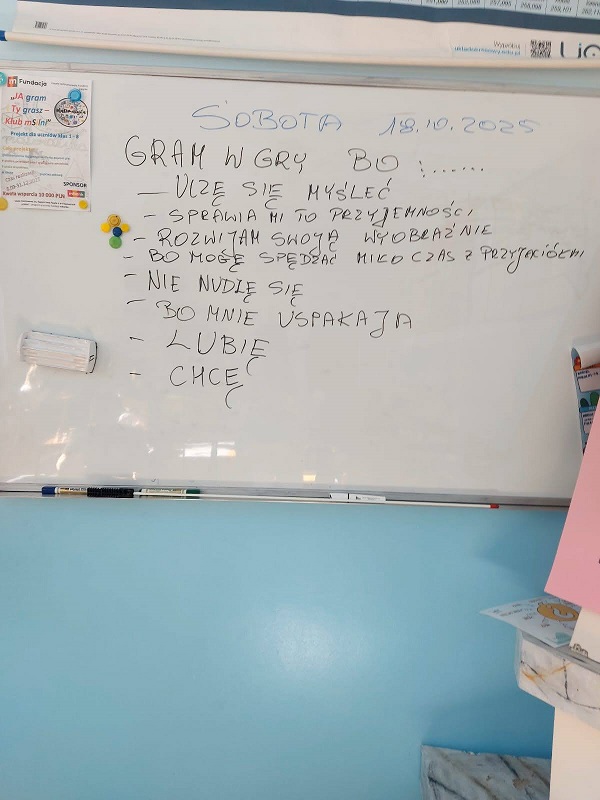 Wypróbuj
Fundacja
„JA gram
Ty grasz –
Klub mSlni"
Projekt dla uczniów klas 1 - 8
SPONSOR
Kwota wsparcia 10 000 PLN
SOBOTA 18.10.2025
GRAM W GRY BO :......
— UCZĘ SIĘ MYŚLEĆ
- SPRAWIA MI TO PRZYJEMNOŚCI
- ROZWIJAM SWOJĄ WYOBRAŹNIE
- BO MOGĘ SPĘDZAĆ MIŁO CZAS Z PRZYJACIÓŁMI
- NIE NUDZĘ SIĘ
- BO MNIE USPAKAJA
- LUBIĘ
- CHCĘ